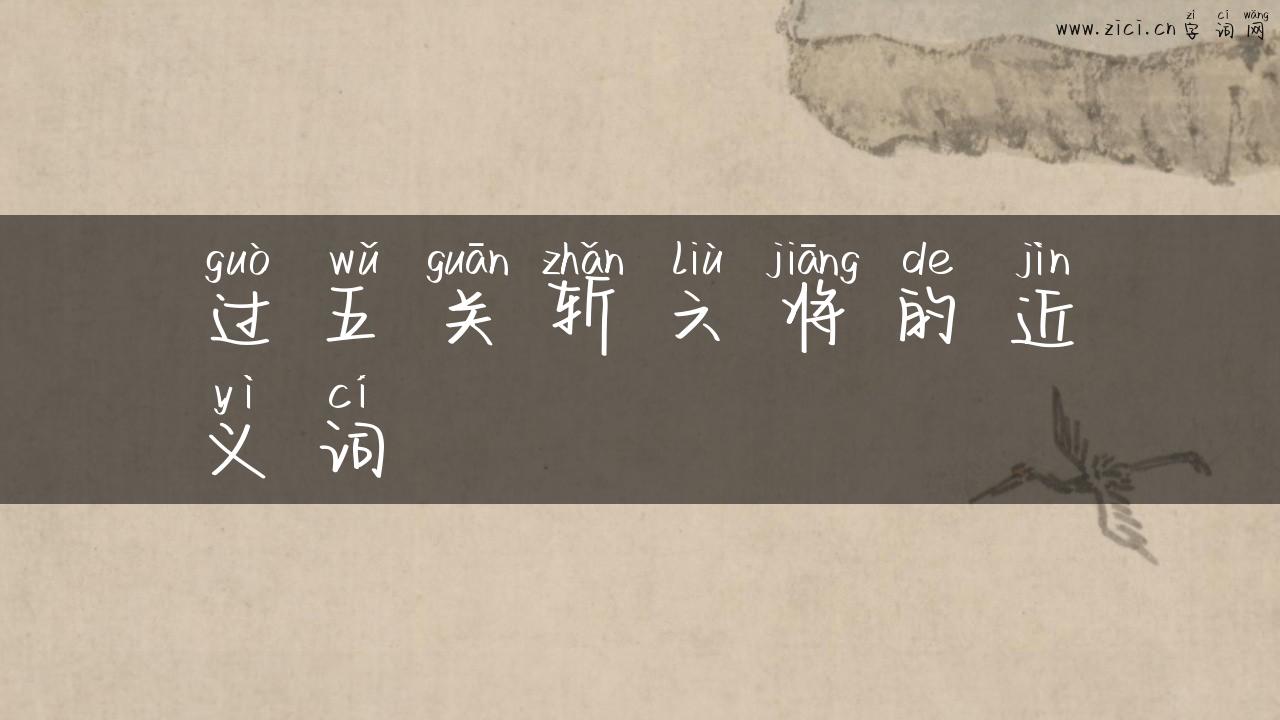 zì cí wǎng
www.zici.cn 字词网
guò wǔ guān zhǎn liù jiāng de jìn
过五关斩六将的近
yì cí
义词